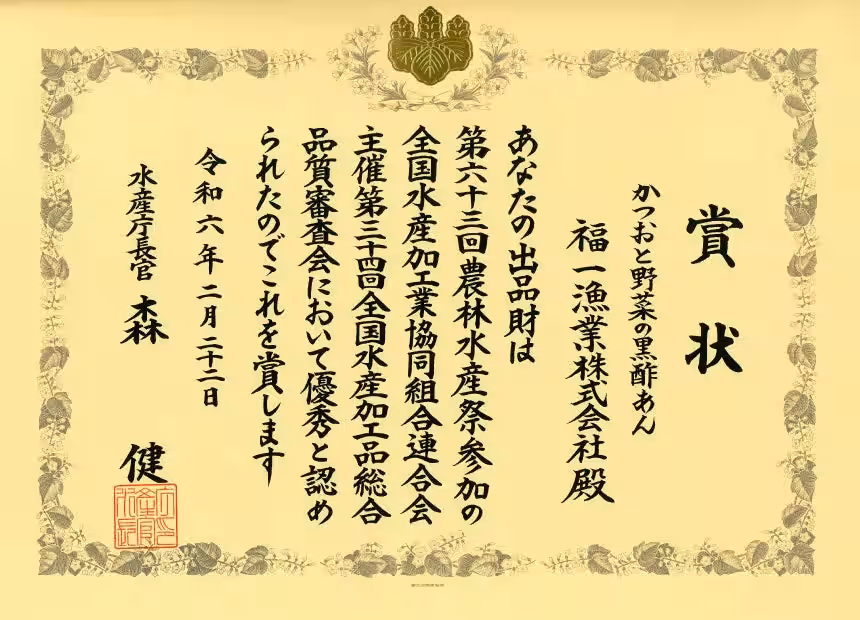 賞状
かつおと野菜の黒酢あん
福一漁業株式会社殿
あなたの出品財は
第六十三回農林水産祭参加の
全国水産加工業協同組合連合会
主催第三十四回全国水産加工品総合
品質審査会において優秀と認め
られたのでこれを賞します
令和六年二月二十二日
水産庁長官 森 健